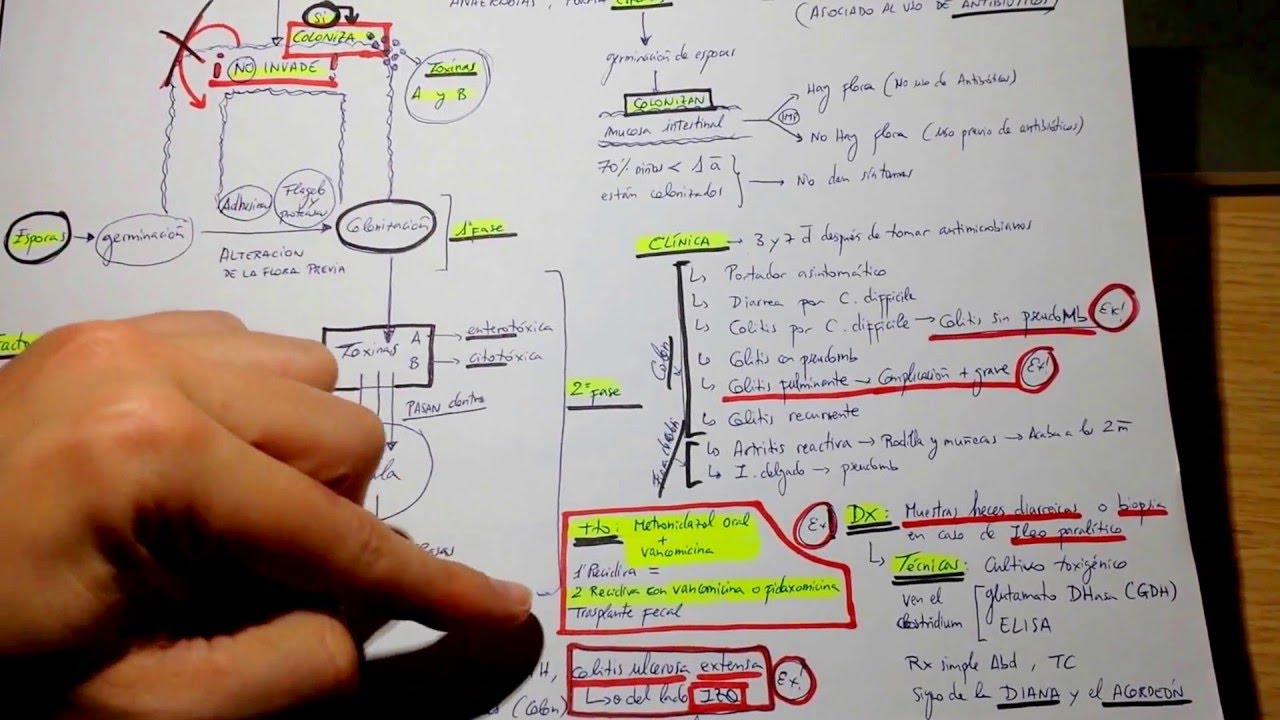 ANAEROBIAS, FORMA
(ASOCIADO AL USO DE ANTIBIÓTICOS)
SI
COLONIZA
¡NO INVADE!
Toxinas
A y B
Esporas
germinación
Adhesina
Flagelo
y
proteasas
ALTERACION
DE LA FLORA PREVIA
Colonización
1ª FASE
Toxinas A
B
enterotóxica
citotóxica
PASAN dentro
2ª FASE
germinación de esporas
COLONIZAN
mucosa intestinal
IMP
Hay flora (No uso de Antibióticos)
No Hay flora (Uso previo de antibióticos)
70% niños < 1 a
están colonizados
No dan síntomas
CLÍNICA → 3 y 7 d después de tomar antimicrobianos
Colon
Portador asintomático
Diarrea por C. difficile
Colitis por C. difficile → Colitis sin pseudoMb Ex!
Colitis con pseudomb
Colitis fulminante → Complicación + grave Ex!
Colitis recurrente
Artritis reactiva → Rodilla y muñecas → Acaba a los 2 m
I. delgado → pseudomb
tto: Metronidazol oral
+
vancomicina
Ex!
1ª Recidiva =
2 Recidiva con vancomicina o fidaxomicina
Trasplante fecal
DX: Muestras heces diarreicas o biopsia
en caso de Ileo paralítico
Técnicas: Cultivo toxigénico
ven el
clostridium
glutamato DHasa (GDH)
ELISA
Rx simple Abd, TC
Signo de la DIANA y el ACORDEÓN
colitis ulcerosa extensa
o del lado IZQ
Ex!
(Colon)